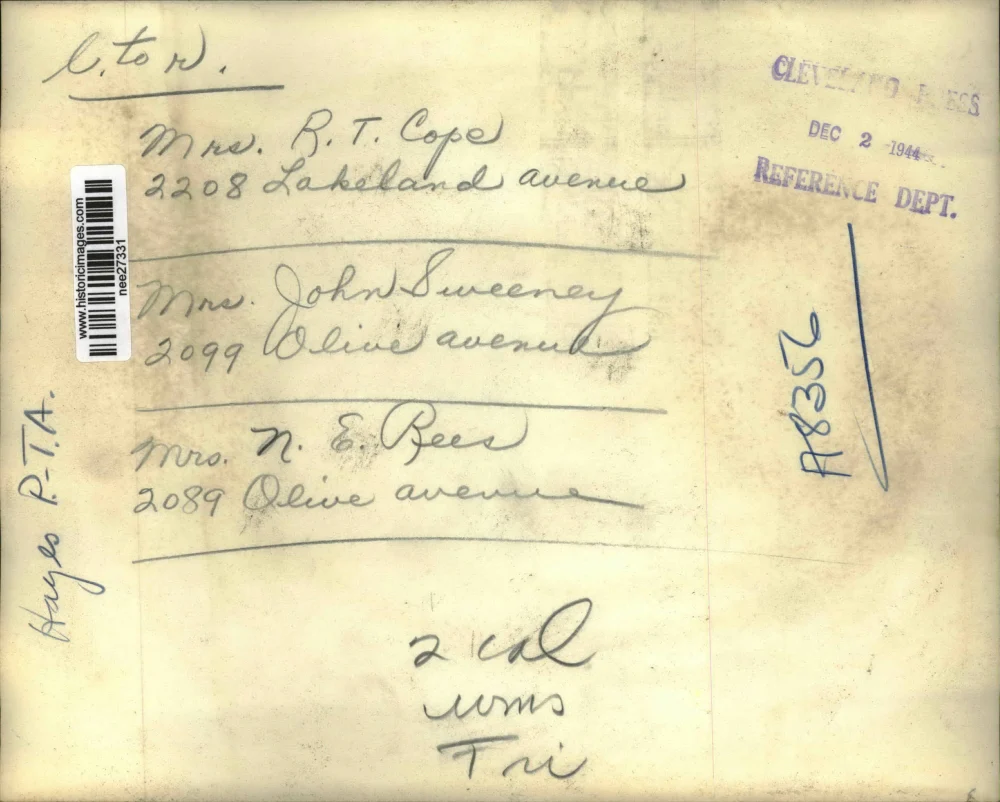 l. to r.
Mrs. R. T. Cope
2208 Lakeland avenue
Mrs. John Sweeney
2099 Olive avenue
Mrs. N. E. Rees
2089 Olive avenue
2 col
wms
Fri
CLEVELAND PRESS
DEC 2 1944
REFERENCE DEPT.
A8356
www.historicimages.com
nee27331
Hayes P.-T.A.